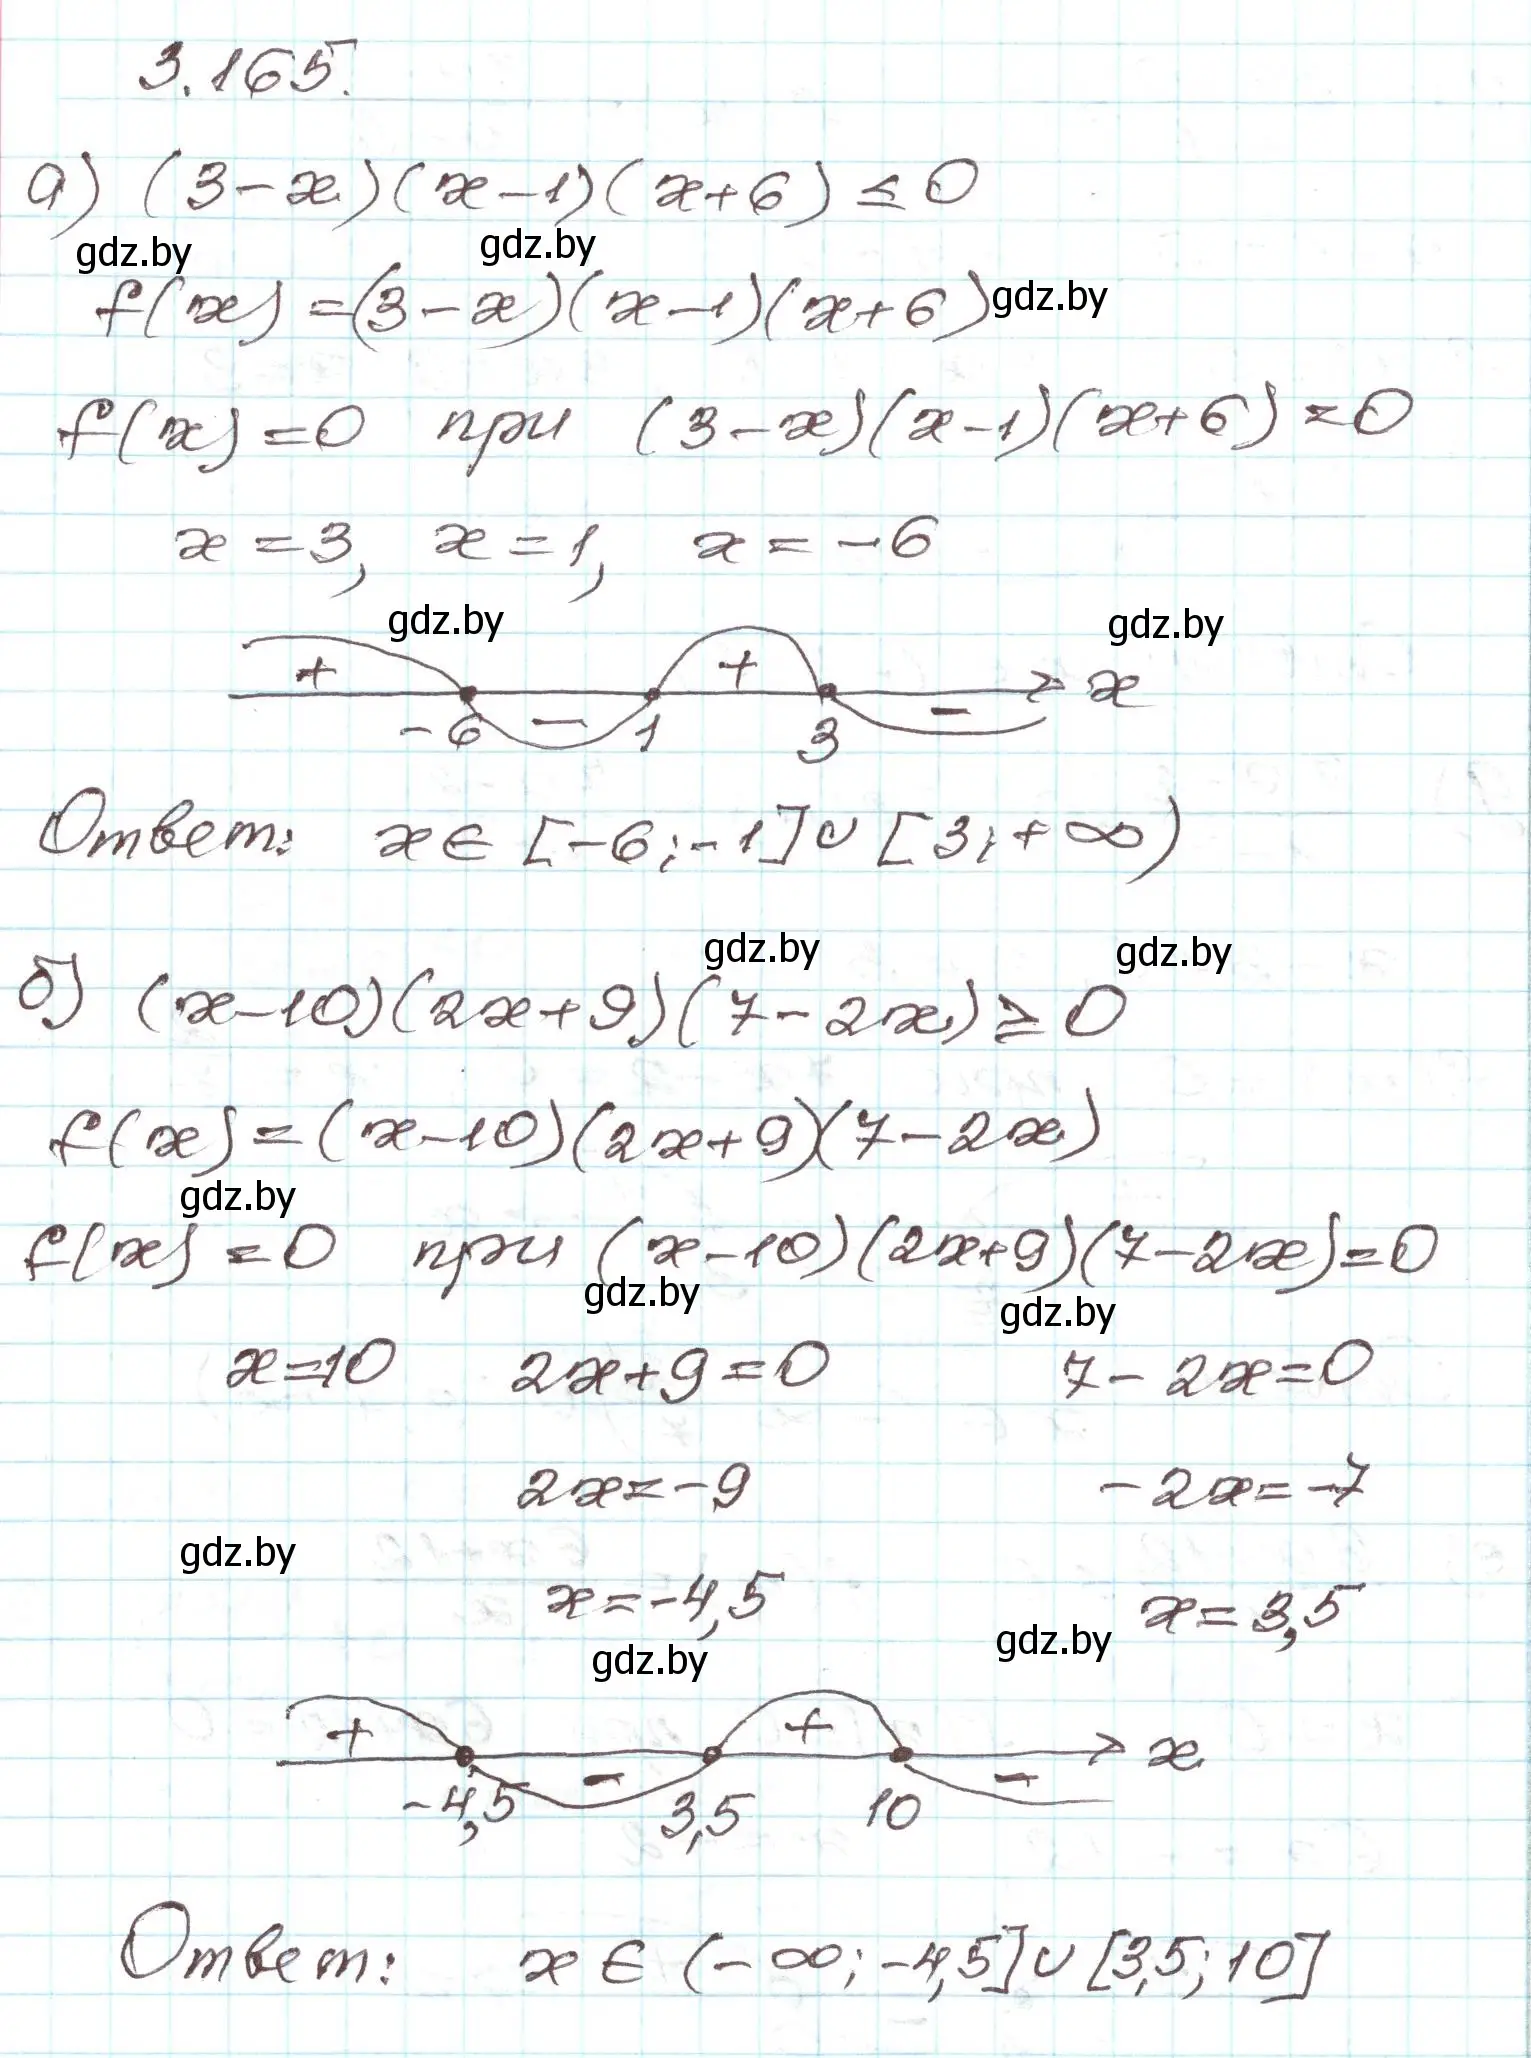 3.165.
а) (3-x)(x-1)(x+6) ≤ 0
gdz.by gdz.by
f(x) = (3-x)(x-1)(x+6) gdz.by
f(x) = 0 при (3-x)(x-1)(x+6) = 0
x = 3, x = 1, x = -6
gdz.by gdz.by
+ - + - x
-6 1 3
Ответ: x ∈ [-6; -1] ∪ [3; +∞)
gdz.by gdz.by
б) (x-10)(2x+9)(7-2x) ≥ 0
f(x) = (x-10)(2x+9)(7-2x)
gdz.by
f(x) = 0 при (x-10)(2x+9)(7-2x) = 0
gdz.by gdz.by
x=10 2x+9=0 7-2x=0
2x=-9 -2x=-7
gdz.by
x=-4,5 x=3,5
gdz.by gdz.by
+ - + - x
-4,5 3,5 10
Ответ: x ∈ (-∞; -4,5] ∪ [3,5; 10]